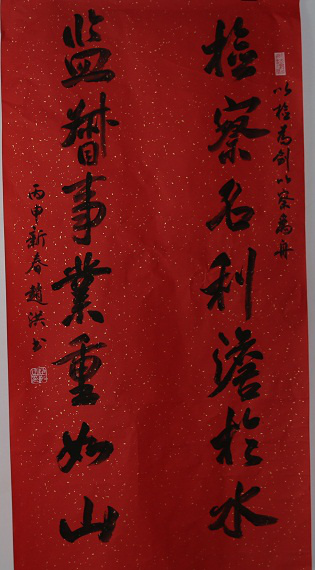 以检为剑以察为舟
檢察名利澹於水
监督事業重如山
丙申新春趙洪书